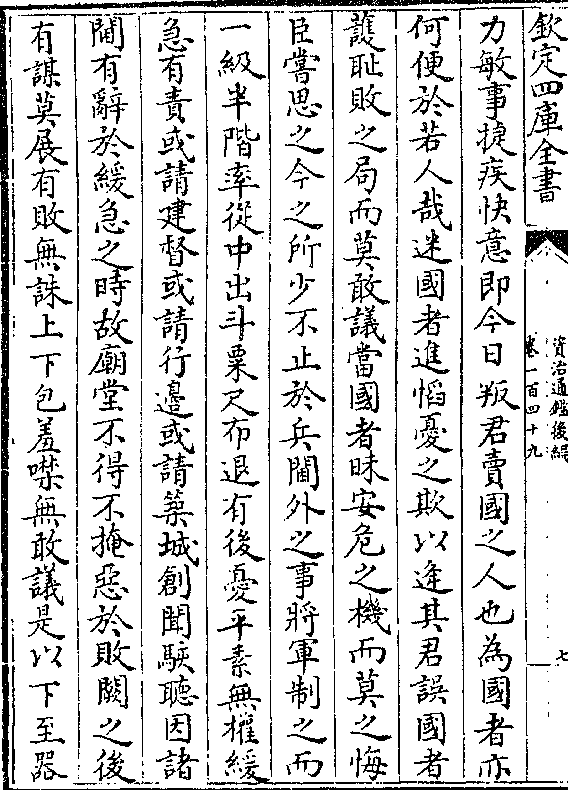 欽定四庫全書
資治通鑑後編
卷一百四十九
七
力敏事捷疾快意即今日叛君賣國之人也為國者亦
何便於若人哉迷國者進慆憂之欺以逢其君誤國者
護恥敗之局而莫敢議當國者昧安危之機而莫之悔
臣嘗思之今之所少不止於兵閫外之事將軍制之而
一級半階率從中出斗粟尺布退有後憂平素無權緩
急有責或請建督或請行邊或請築城創聞駭聽因諸
閫有辭於緩急之時故廟堂不得不掩惡於敗闕之後
有謀莫展有敗無誅上下包羞噤無敢議是以下至器